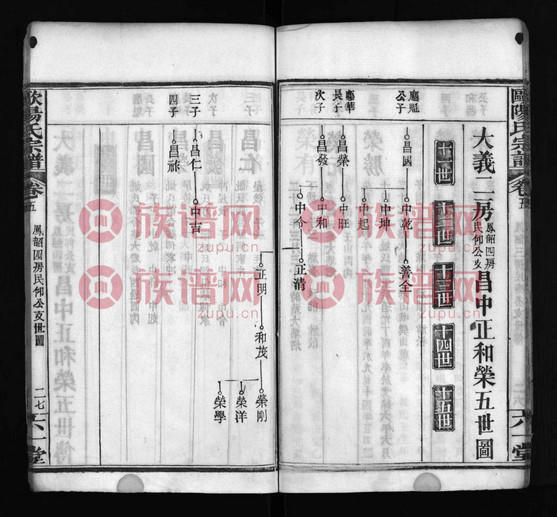 歐陽氏宗譜
卷五
六一堂
大義二房鳳韶四房民何公支昌中正和榮五世圖
十一世
十二世
十三世
十四世
十五世
公子
昌國
中乾
善全
中坤
中起
長子
昌榮
中旺
次子
昌發
中和
中今
正清
三子
昌仁
中吉
正明
和茂
榮剛
榮洋
榮學
四子
昌祿
歐陽氏宗譜
卷五
鳳韶四房民何公支世圖
二七
六一堂
族谱网
zupu.cn
族谱网
zupu.cn
族谱网
zupu.cn
族谱网
zupu.cn